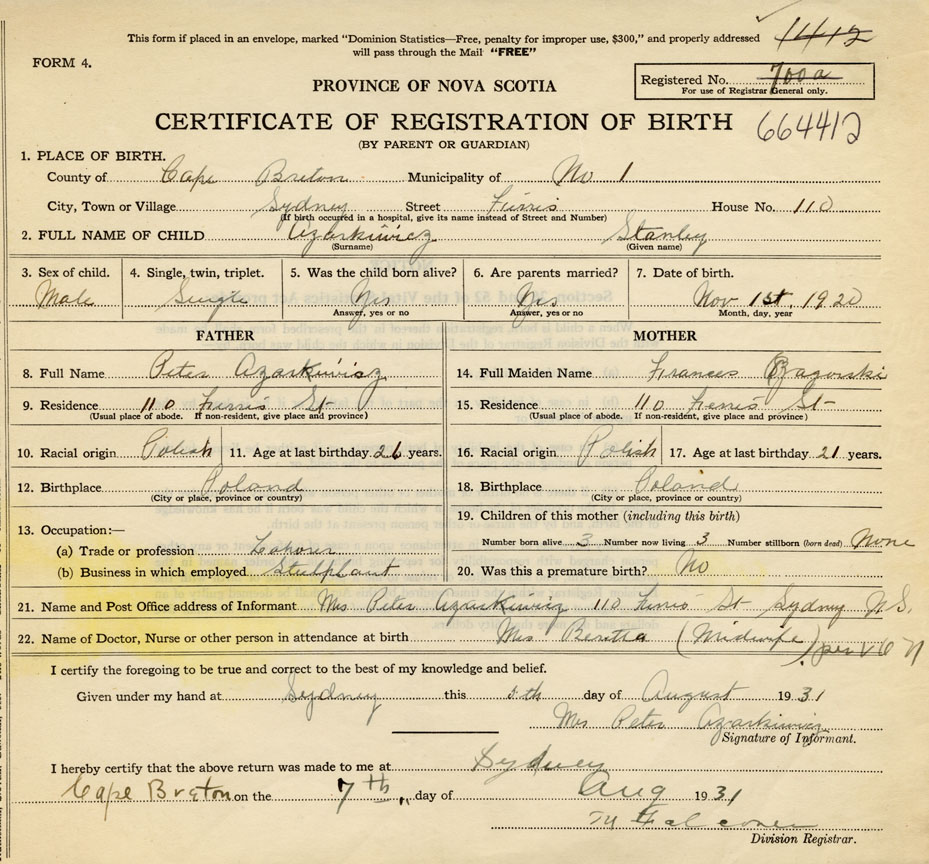 This form if placed in an envelope, marked "Dominion Statistics—Free, penalty for improper use, $300," and properly addressed 1412
will pass through the Mail "FREE"
FORM 4.
PROVINCE OF NOVA SCOTIA
Registered No. 700a
For use of Registrar General only.
CERTIFICATE OF REGISTRATION OF BIRTH 664412
(BY PARENT OR GUARDIAN)
1. PLACE OF BIRTH.
County of Cape Breton Municipality of No 1
City, Town or Village Sydney Street Ferris House No. 110
(If birth occurred in a hospital, give its name instead of Street and Number)
2. FULL NAME OF CHILD Azarkiwicz Stanley
(Surname) (Given name)
3. Sex of child. 4. Single, twin, triplet. 5. Was the child born alive? 6. Are parents married? 7. Date of birth.
Male Single Yes Yes Nov 1st, 1920
Answer, yes or no Answer, yes or no Month, day, year
FATHER MOTHER
8. Full Name Peter Azarkiwicz 14. Full Maiden Name Frances Zagorski
9. Residence 110 Ferris St 15. Residence 110 Ferris St
(Usual place of abode. If non-resident, give place and province) (Usual place of abode. If non-resident, give place and province)
10. Racial origin Polish 11. Age at last birthday 26 years. 16. Racial origin Polish 17. Age at last birthday 21 years.
12. Birthplace Poland 18. Birthplace Poland
(City or place, province or country) (City or place, province or country)
13. Occupation:— 19. Children of this mother (including this birth)
(a) Trade or profession Labourer Number born alive 3 Number now living 3 Number stillborn (born dead) None
(b) Business in which employed Steelplant 20. Was this a premature birth? No
21. Name and Post Office address of Informant Mrs Peter Azarkiwicz 110 Ferris St Sydney N.S.
22. Name of Doctor, Nurse or other person in attendance at birth Mrs Beretta (Midwife) per
I certify the foregoing to be true and correct to the best of my knowledge and belief.
Given under my hand at Sydney this 5th day of August 1931
Mrs Peter Azarkiwicz
Signature of Informant.
I hereby certify that the above return was made to me at Sydney
Cape Breton on the 7th day of Aug 1931
Falconer
Division Registrar.